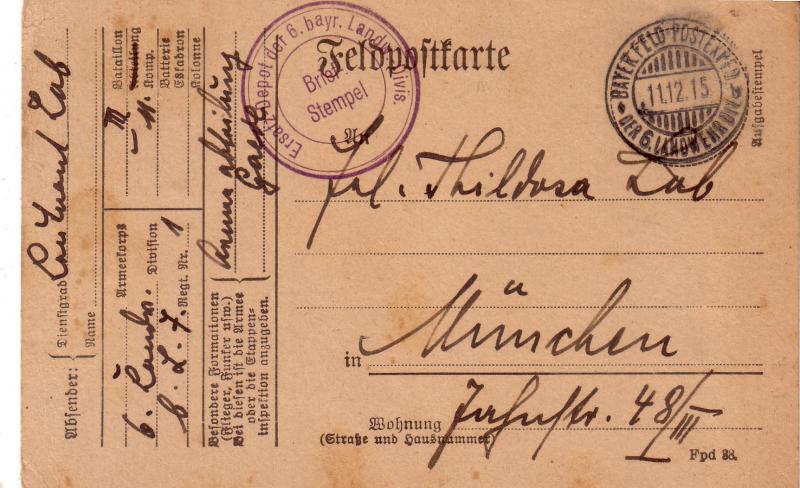 Feldpostkarte
Ersatz-Depot der 6. bayr. Landw. Divis.
Brief
Stempel
BAYER. FELD-POSTEXPED.
11.12.15
DER 6. LANDWEHR DIV.
Ausgabestempel
An
Frl. Thildosa Lab
in München
Jahnstr. 48/III
Wohnung
(Straße und Hausnummer)
Fpd 38.
Absender:
Dienstgrad
Name
Leutnant Lab
Armeekorps
Division
Regt. Nr.
6. Landw.
b. L. I. 7. 1
Bataillon
Abteilung
Komp.
Batterie
Eskadron
Kolonne
III
11.
Besondere Formationen
(Flieger, Funker usw.)
Bei diesen ist die Armee
oder die Etappen-
inspektion anzugeben.